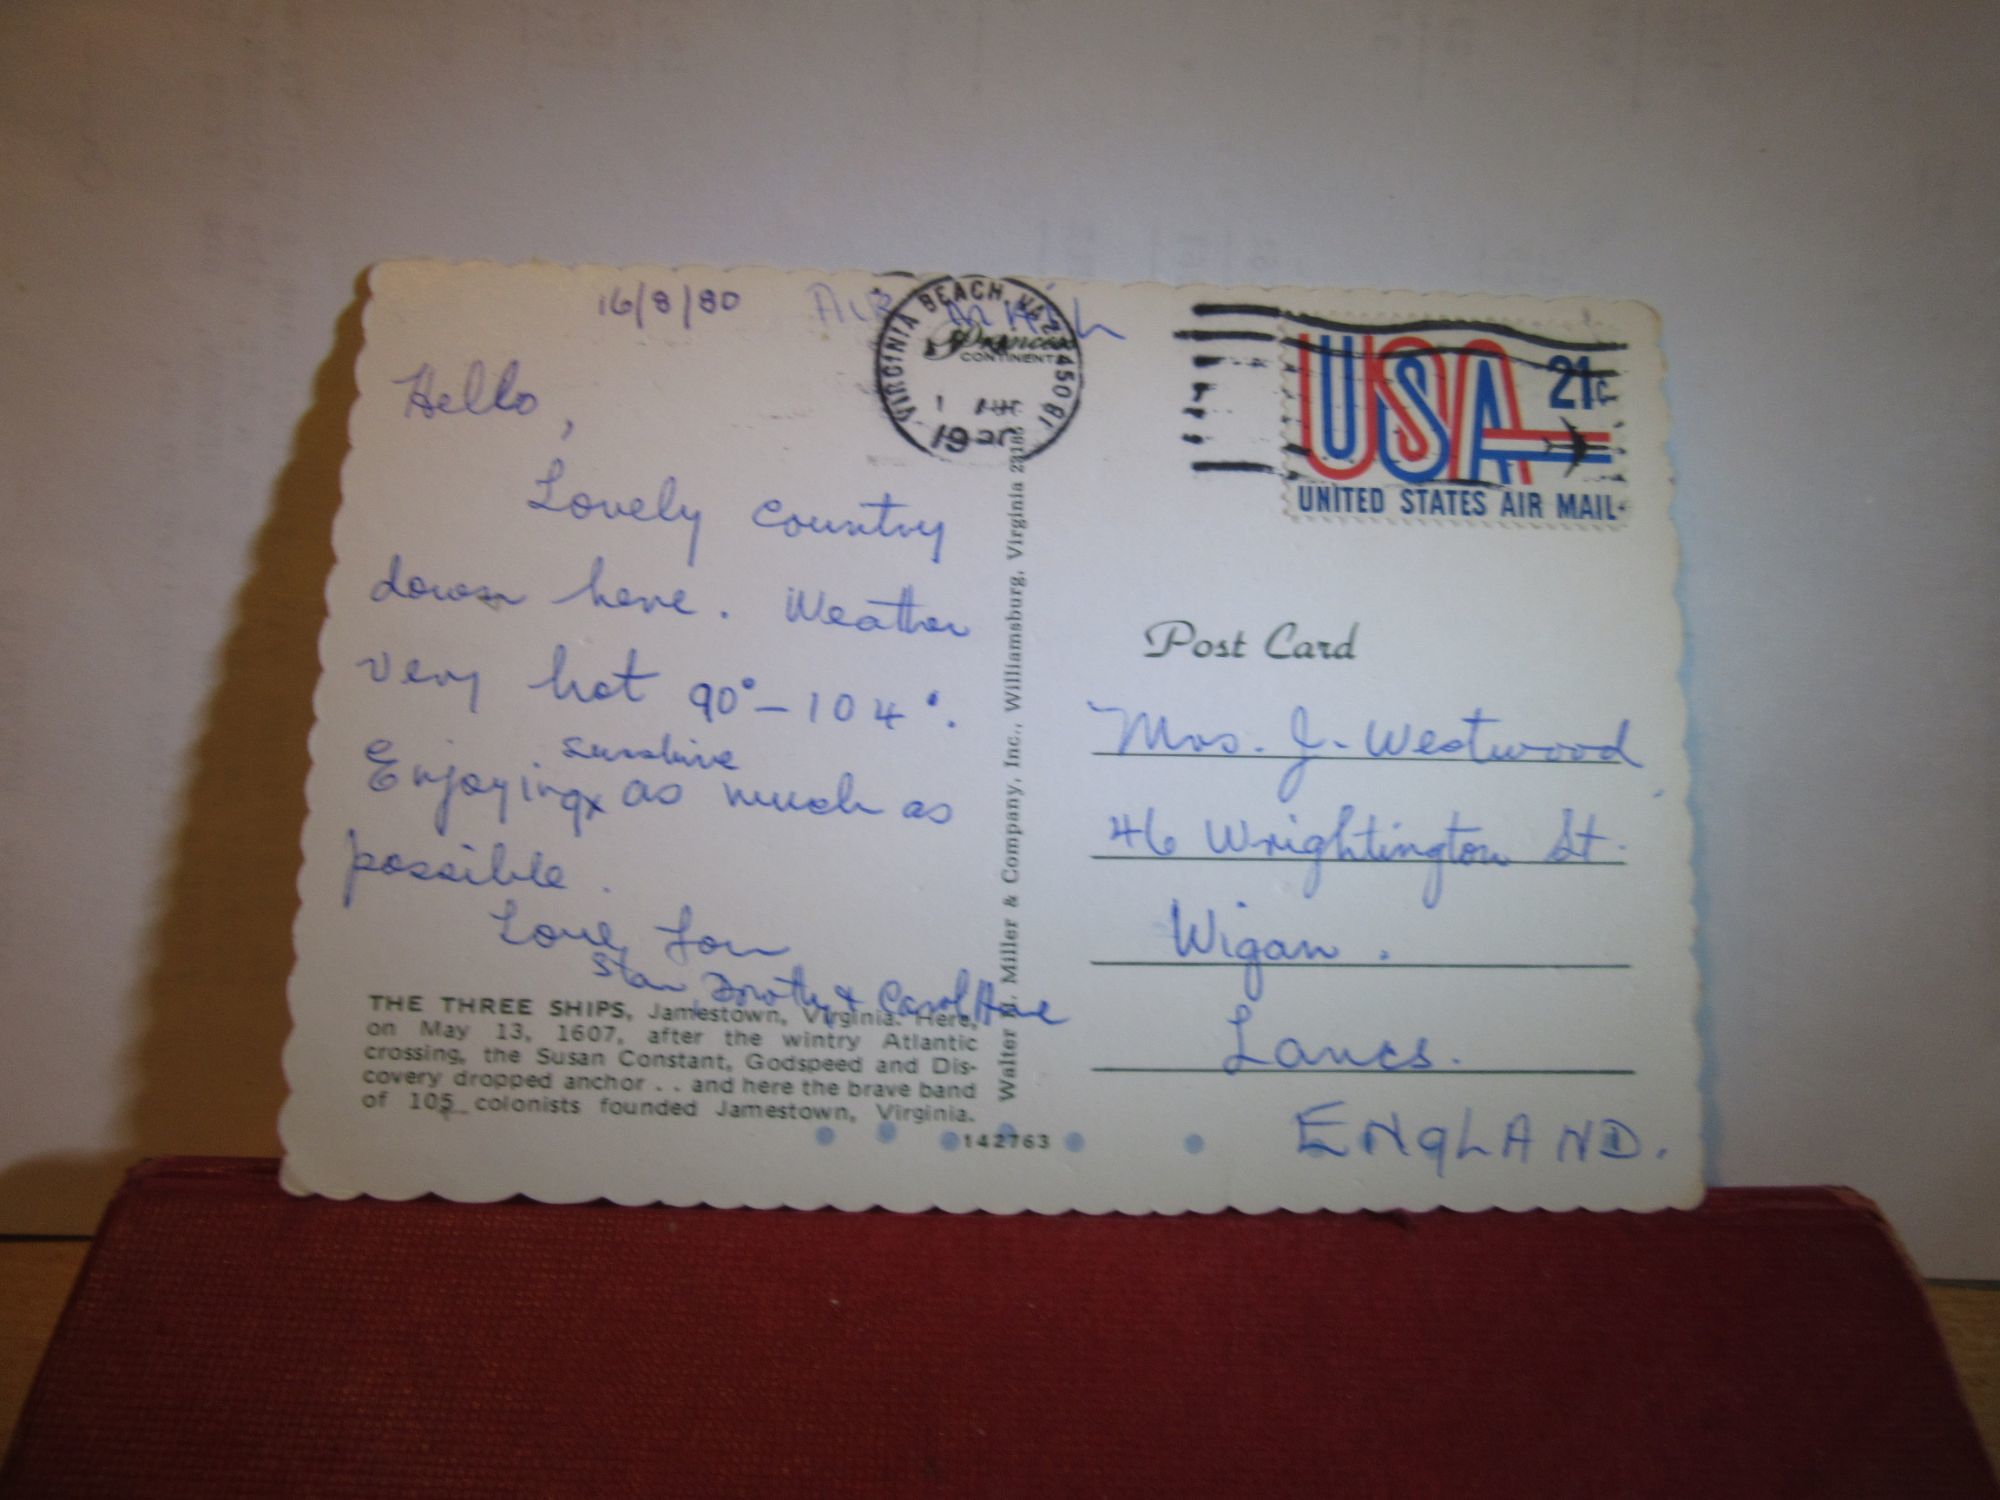 16/8/80
AIR
Hello,
Lovely country
down here. Weather
very hot 90°-104°.
sunshine
Enjoying x as much as
possible.
Love from
Stan Dorothy & Carol Anne
THE THREE SHIPS, Jamestown, Virginia. Here,
on May 13, 1607, after the wintry Atlantic
crossing, the Susan Constant, Godspeed and Dis-
covery dropped anchor . . and here the brave band
of 105 colonists founded Jamestown, Virginia.
142763
VIRGINIA BEACH, VA
CONTINENTAL
Walter H. Miller & Company, Inc., Williamsburg, Virginia
USA 21c
UNITED STATES AIR MAIL
Post Card
Mrs. J. Westwood
46 Wrightington St.
Wigan.
Lancs.
ENGLAND.